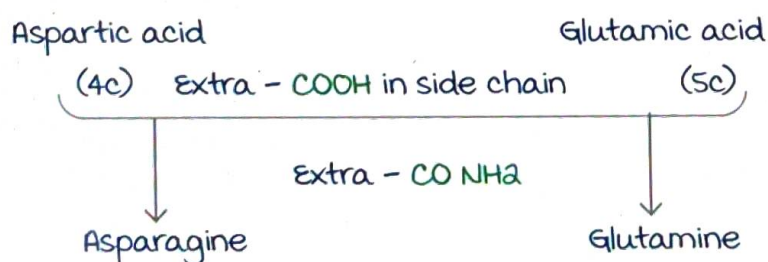 Aspartic acid Glutamic acid
(4c) Extra - COOH in side chain (5c)
Extra - CO NH2
Asparagine Glutamine